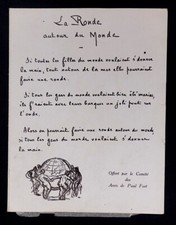 La Ronde
autour du Monde
Si toutes les filles du monde voulaient s'donner
la main, tout autour de la mer elles pourraient
faire une ronde.
Si tous les gars du monde voulaient bien êtr' marins,
ils f'raient avec leurs barques un joli pont sur
l'onde.
Alors on pourrait faire une ronde autour du monde
si tous les gens du monde voulaient s'donner
la main.
Offert par le Comité
des
Amis de Paul Fort